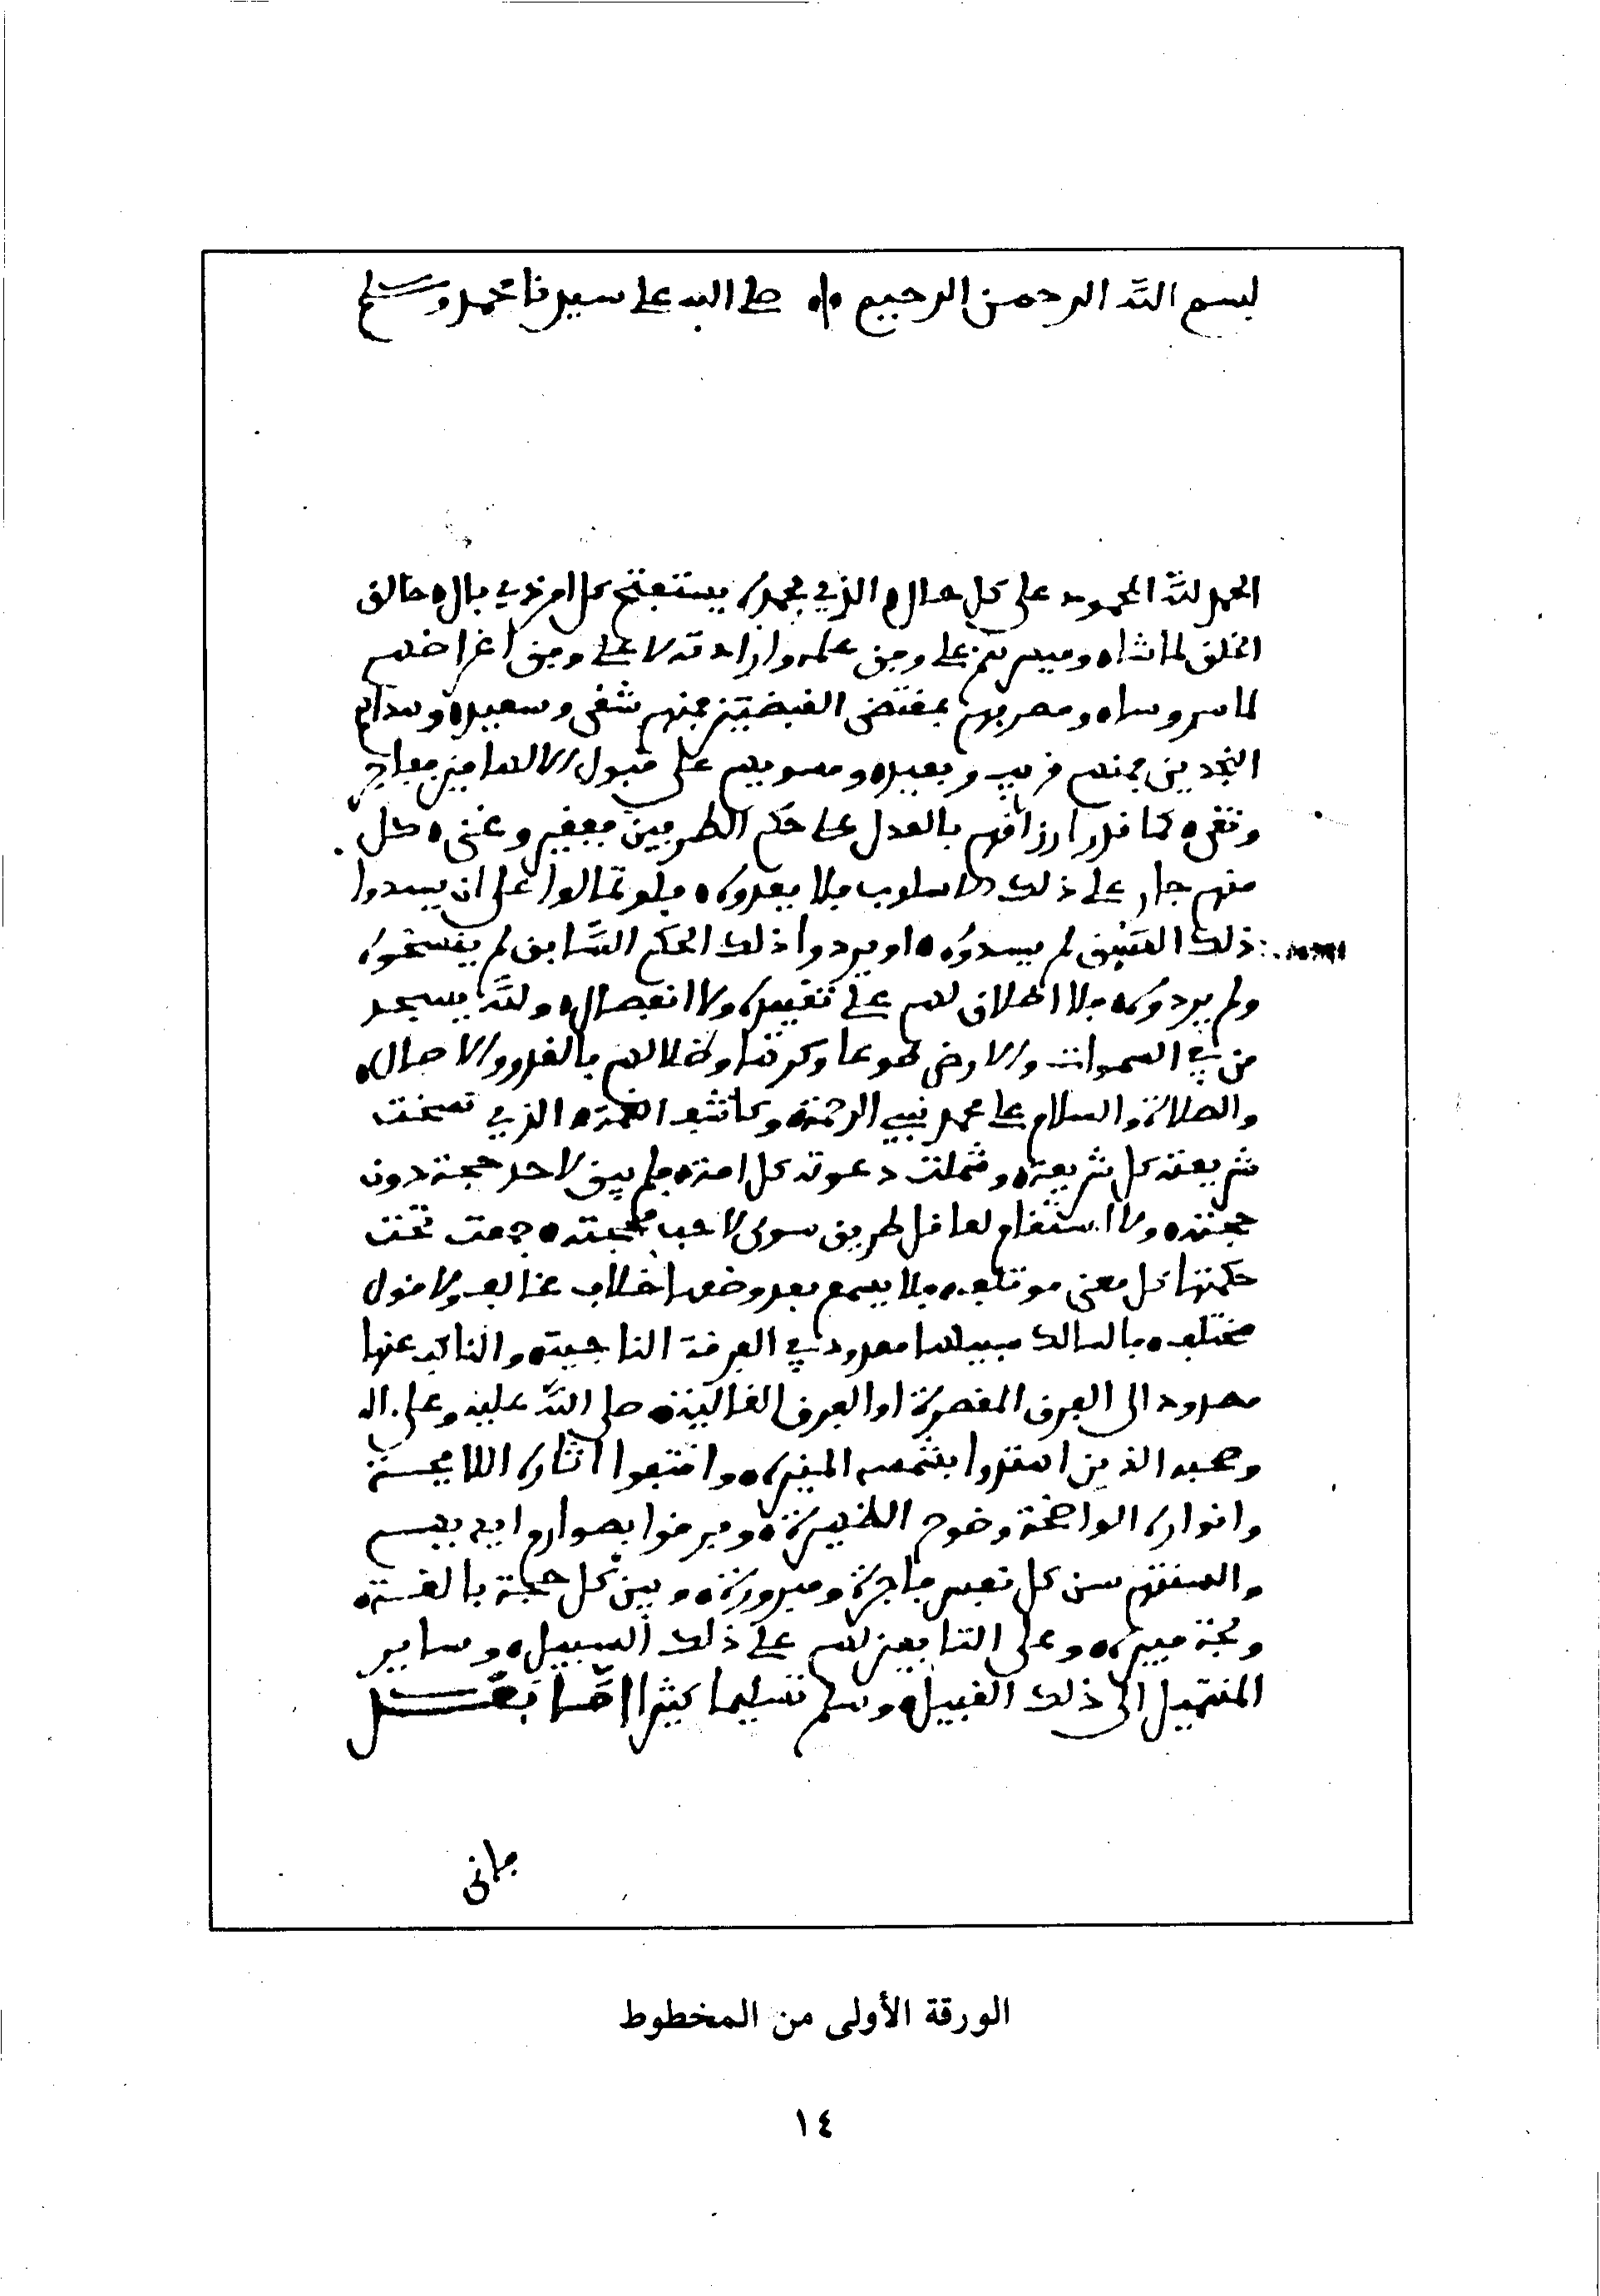 بسم الله الرحمن الرحيم صلى الله على سيدنا محمد وسلم
الحمد لله المحمود على كل حال الذي بحمده يستفتح كل امر ذي بال خالق
الخلق لما شاء وميسرهم على وفق علمه وارادته لا على وفق اغراضهم
لما سر وساء ومصرفهم بمقتضى القبضتين فمنهم شقي وسعيد وهداهم
النجدين فمنهم قريب وبعيد ومسويهم على قبول الالهامين ففاجر
وتقي كما قدر ارزاقهم بالعدل على حكم الطرفين ففقير وغني كل
منهم جار على ذلك الاسلوب فلا يعدوه فلو تمالوا على ان يسدوا
ذلك الفتق لم يسدوه او يردوا ذلك الحكم السابق لم ينسخوه
ولم يردوه فلا اطلاق لهم على تقييده ولا انفصال ولله يسجد
من في السموات والارض طوعا وكرها وظلالهم بالغدو والاصال
والصلاة والسلام على محمد نبي الرحمة وكاشف الغمة الذي نسخت
شريعته كل شريعة وشملت دعوته كل امة فلم يبق لاحد حجة دون
حجته ولا استقام لعاقل طريق سوى لاحب محجته جمعت تحت
حكمتها كل معنى مؤتلف فلا يسمع بعد وضعها خلاف مخالف ولا قول
مختلف فالسالك سبيلها معدود في الفرقة الناجية والناكب عنها
مصدود الى الفرق المقصرة او الفرق الغالية صلى الله عليه وعلى اله
وصحبه الذين اهتدوا بشمسه المنيرة واقتفوا اثاره اللائحة
وانواره الواضحة وضوح الظهيرة وفرقوا بصوارم ايديهم
والسنتهم بين كل نفس فاجرة ومبرورة وبين كل حجة بالغة
وحجة مبيرة وعلى التابعين لهم على ذلك السبيل وساير
المنتمين الى ذلك القبيل وسلم تسليما كثيرا اما بعد
فاني
الورقة الأولى من المخطوط
١٤